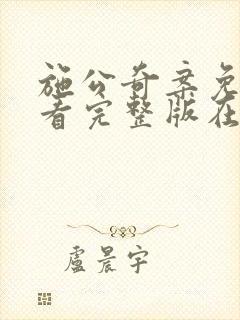 施公奇案免
看完整版在
盧晨宇